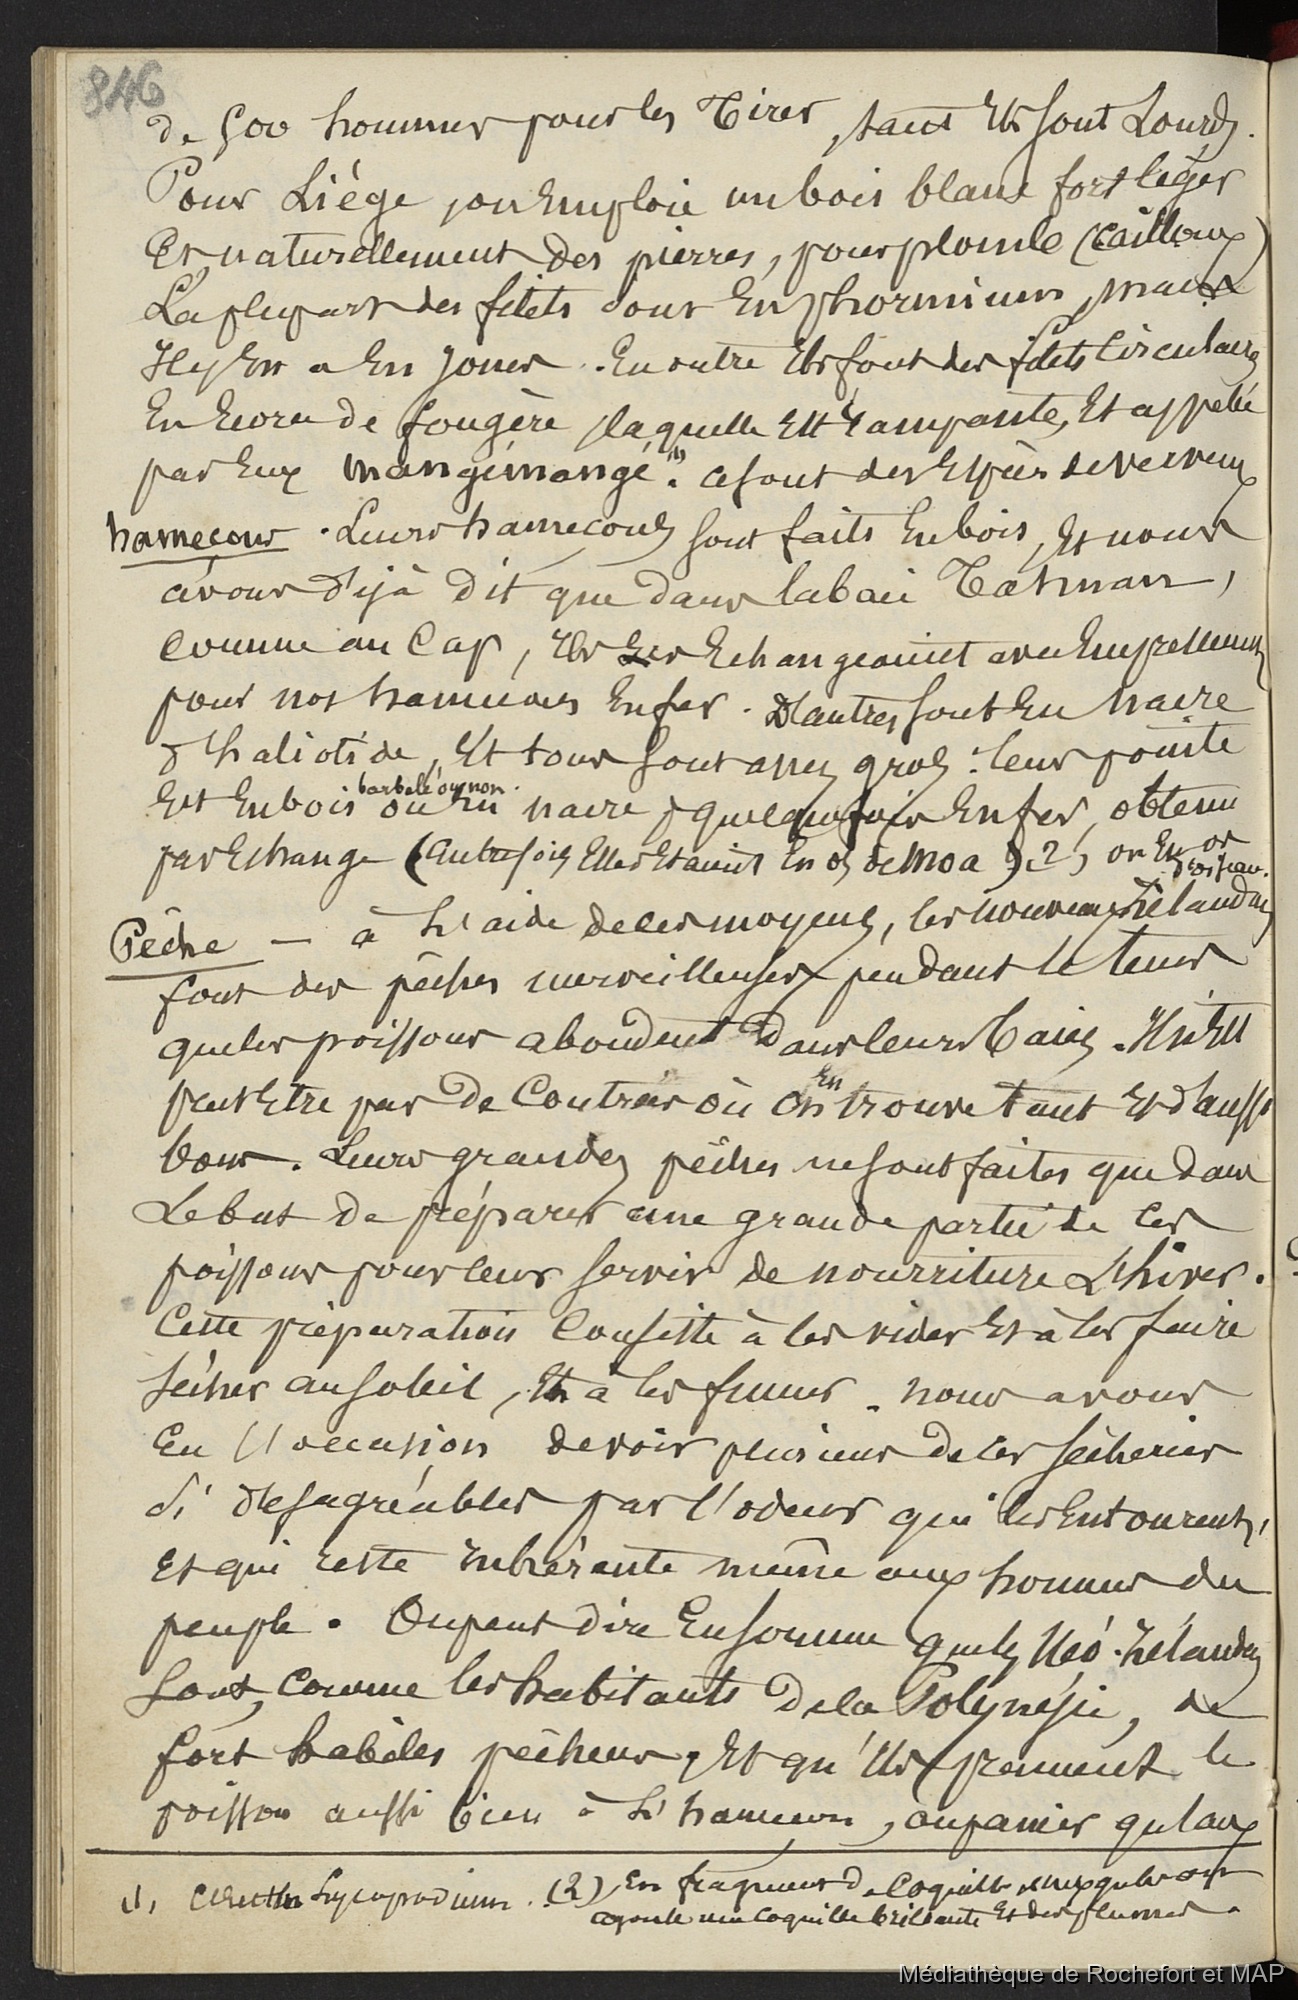 846
de 500 hommes pour les tirer, tant ils sont Lourds.
Pour Liège, on Emploie un bois blanc fort léger
Et naturellement des pierres, pour plomb (cailloux)
La plupart des filets sont En phormium, mais
Il y En a En joncs. En outre ils font des filets circulaires
En Ecorce de fougère, laquelle Est rampante, Et appelée
par Eux mangémangé (1). ce sont des Espèces de verveux
hameçons. Leurs hameçons sont faits En bois, Et nous
avons déjà dit que dans la baie Tasman,
comme au Cap, ils les Echangeaient avec Empressement
pour nos hameçons En fer. D'autres sont En nacre
d'haliotide, Et tous sont assez gros : leur pointe
Est En bois barbelé ou non ou En nacre, & quelquefois En fer, obtenu
par Echange (autrefois Elles Etaient En os de Moa) (2) ou En os
d'oiseau.
Pêche — à l'aide de ces moyens, les nouveaux Zélandais
font des pêches merveilleuses pendant le tems
que les poissons abondent dans leurs baies. Il n'Est
peut Etre pas de Contrées où on En trouve tant Et d'aussi
bons. Leurs grandes pêches ne sont faites que dans
Le but de préparer une grande partie de ces
poissons pour leur servir de nourriture L'hiver.
Cette préparation Consiste à les vider Et à les faire
sécher au soleil, Et à les fumer. nous avons
Eu l'occasion de voir plusieurs de ces sécheries
si désagréables par l'odeur qui les Entourent,
Et qui reste inhérente même aux hommes du
peuple. On peut dire En somme que les Néo-Zélandais
sont, comme les habitants de la Polynésie, de
fort habiles pêcheurs, Et qu'ils prennent le
poisson aussi bien à l'hameçon, au panier qu'aux
(1) Lycopodium. (2) En fragment de Coquille auxquels on
ajoute une coquille brillante Et des plumes.
Médiathèque de Rochefort et MAP